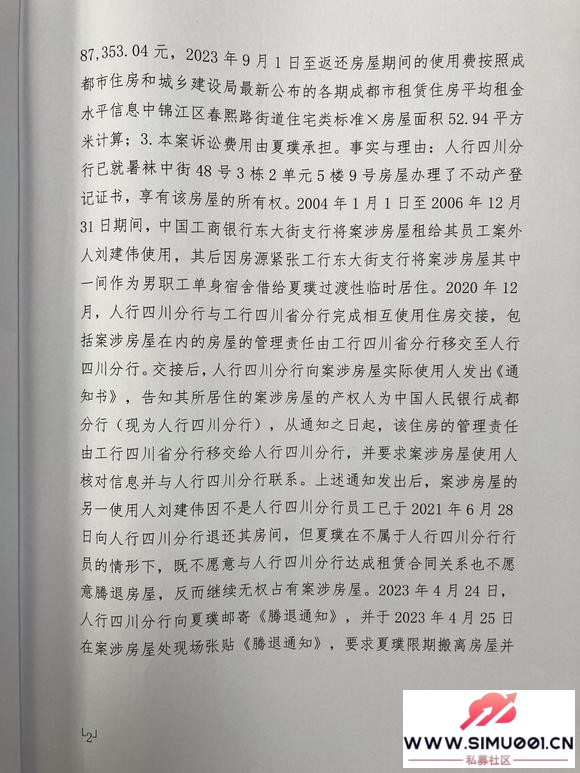 87,353.04 元，2023 年 9 月 1 日至返还房屋期间的使用费按照成
都市住房和城乡建设局最新公布的各期成都市租赁住房平均租金
水平信息中锦江区春熙路街道住宅类标准×房屋面积 52.94 平方
米计算；3. 本案诉讼费用由夏璞承担。事实与理由：人行四川分
行已就暑袜中街 48 号 3 栋 2 单元 5 楼 9 号房屋办理了不动产登
记证书，享有该房屋的所有权。2004 年 1 月 1 日至 2006 年 12 月
31 日期间，中国工商银行东大街支行将案涉房屋租给其员工案外
人刘建伟使用，其后因房源紧张工行东大街支行将案涉房屋其中
一间作为男职工单身宿舍借给夏璞过渡性临时居住。2020 年 12
月，人行四川分行与工行四川省分行完成相互使用住房交接，包
括案涉房屋在内的房屋的管理责任由工行四川省分行移交至人行
四川分行。交接后，人行四川分行向案涉房屋实际使用人发出《通
知书》，告知其所居住的案涉房屋的产权人为中国人民银行成都
分行（现为人行四川分行），从通知之日起，该住房的管理责任
由工行四川省分行移交给人行四川分行，并要求案涉房屋使用人
核对信息并与人行四川分行联系。上述通知发出后，案涉房屋的
另一使用人刘建伟因不是人行四川分行员工已于 2021 年 6 月 28
日向人行四川分行退还其房间，但夏璞在不属于人行四川分行行
员的情形下，既不愿意与人行四川分行达成租赁合同关系也不愿
意腾退房屋，反而继续无权占有案涉房屋。2023 年 4 月 24 日，
人行四川分行向夏璞邮寄《腾退通知》，并于 2023 年 4 月 25 日
在案涉房屋处现场张贴《腾退通知》，要求夏璞限期搬离房屋并
「2」
WWW.SIMU001.CN
私募社区